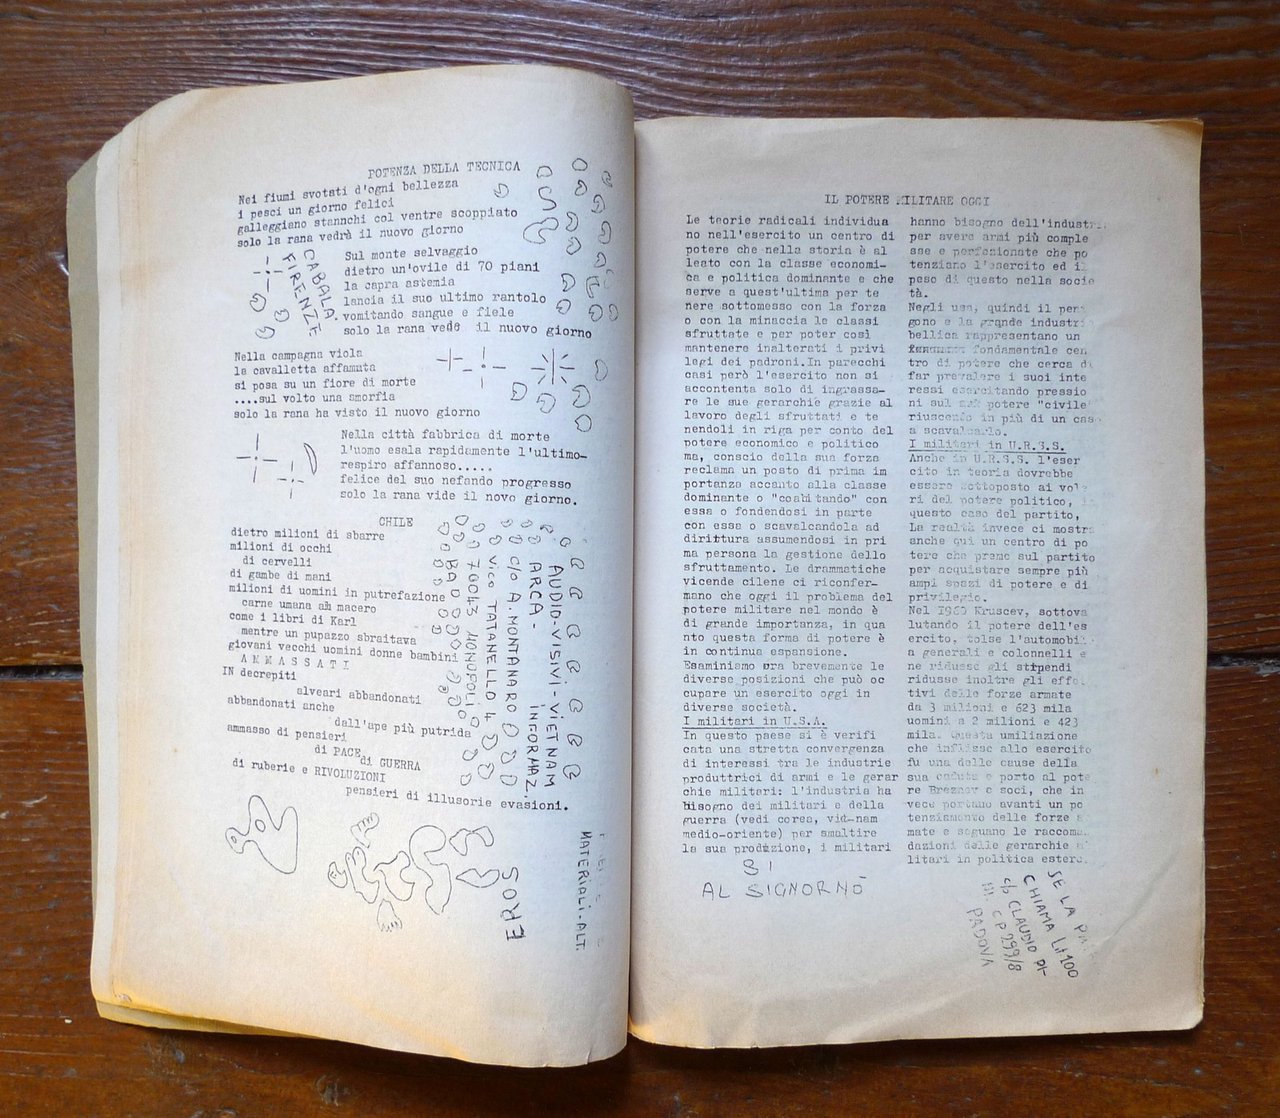 POTENZA DELLA TECNICA
Nei fiumi svotati d'ogni bellezza
i pesci un giorno felici
galleggiano stannchi col ventre scoppiato
solo la rana vedrà il nuovo giorno
Sul monte selvaggio
dietro un'ovile di 70 piani
la capra astemia
lancia il suo ultimo rantolo
vomitando sangue e fiele
solo la rana vede il nuovo giorno
CABALA.
FIRENZE
Nella campagna viola
la cavalletta affamata
si posa su un fiore di morte
....sul volto una smorfia
solo la rana ha visto il nuovo giorno
Nella città fabbrica di morte
l'uomo esala rapidamente l'ultimo-
respiro affannoso.....
felice del suo nefando progresso
solo la rana vide il novo giorno.
CHILE
dietro milioni di sbarre
milioni di occhi
di cervelli
di gambe di mani
milioni di uomini in putrefazione
carne umana al macero
come i libri di Karl
mentre un pupazzo sbraitava
giovani vecchi uomini donne bambini
AMMASSATI
IN decrepiti
alveari abbandonati
abbandonati anche
dall'ape più putrida
ammasso di pensieri
di PACE
di GUERRA
di ruberie e RIVOLUZIONI
pensieri di illusorie evasioni.
AUDIO-VISIVI-VIETNAM
ARCA- INFORMAZ.
C/O A.MONTANARO
VICO TATANELLO 4
70043 MONOPOLI
BA
EROS
MATERIALI-ALT.
IL POTERE MILITARE OGGI
Le teorie radicali individua
no nell'esercito un centro di
potere che nella storia è al
leato con la classe economi-
ca e politica dominante e che
serve a quest'ultima per te
nere sottomesso con la forza
o con la minaccia le classi
sfruttate e per poter così
mantenere inalterati i privi
legi dei padroni.In parecchi
casi però l'esercito non si
accontenta solo di ingrassa-
re le sue gerarchie grazie al
lavoro degli sfruttati e te
nendoli in riga per conto del
potere economico e politico
ma, conscio della sua forza
reclama un posto di prima im
portanza accanto alla classe
dominante o "coabitando" con
essa o fondendosi in parte
con essa o scavalcandola ad
dirittura assumendosi in pri
ma persona la gestione dello
sfruttamento. Le drammatiche
vicende cilene ci riconfer-
mano che oggi il problema del
potere militare nel mondo è
di grande importanza, in qua
nto questa forma di potere è
in continua espansione.
Esaminiamo ora brevemente le
diverse posizioni che può oc
cupare un esercito oggi in
diverse società.
I militari in U.S.A.
In questo paese si è verifi
cata una stretta convergenza
di interessi tra le industrie
produttrici di armi e le gerar
chie militari: l'industria ha
bisogno dei militari e della
guerra (vedi corea, viet-nam
medio-oriente) per smaltire
la sua produzione, i militari
hanno bisogno dell'industr
per avere armi più comple
sse e perfezionate che po
tenziano l'esercito ed il
peso di questo nella socie
tà.
Negli usa, quindi il pen
gono e la grande industri
bellica rappresentano un
fondamentale cen
tro di potere che cerca di
far prevalere i suoi inte
ressi esercitando pressio
ni sul potere "civile"
riuscendo in più di un cas
a scavalcarlo.
I militari in U.R.S.S.
Anche in U.R.S.S. l'eser
cito in teoria dovrebbe
essere sottoposto ai vole
ri del potere politico,
questo caso del partito,
La realtà invece ci mostra
anche qui un centro di po
tere che preme sul partito
per acquistare sempre più
ampi spazi di potere e di
privilegio.
Nel 1960 Kruscev, sottova
lutando il potere dell'es
ercito, tolse l'automobil
a generali e colonnelli e
ne ridusse gli stipendi
ridusse inoltre gli effet
tivi delle forze armate
da 3 milioni e 623 mila
uomini a 2 milioni e 423
mila. Questa umiliazione
che inflisse allo esercito
fu una delle cause della
sua caduta e porto al pote
re Breznev e soci, che in
vece portano avanti un po
tenziamento delle forze a
mate e seguano le raccoman
dazioni delle gerarchie m
litari in politica estera.
SI
AL SIGNORNÒ
SE LA
CHIAMA Lit100
c/o CLAUDIO DI-
CP 299/8
PADOVA